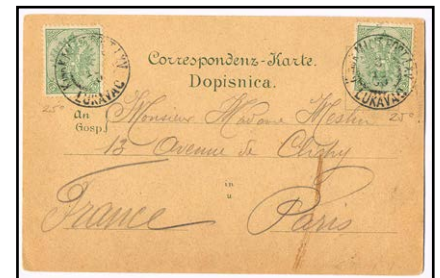 LUKAVAC
LUKAVAC
Correspondenz-Karte.
Dopisnica.
25c
25c
An
Gosp.
Monsieur Madame
13 Avenue de Clichy
in
u
France
Paris